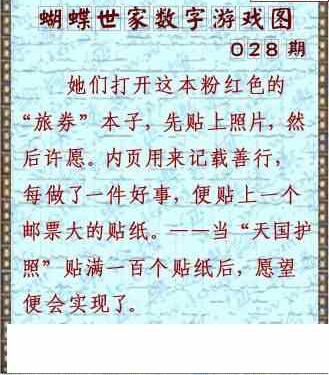 蝴蝶世家数字游戏图
028期
她们打开这本粉红色的
“旅券”本子，先贴上照片，然
后许愿。内页用来记载善行，
每做了一件好事，便贴上一个
邮票大的贴纸。——当“天国护
照”贴满一百个贴纸后，愿望
便会实现了。